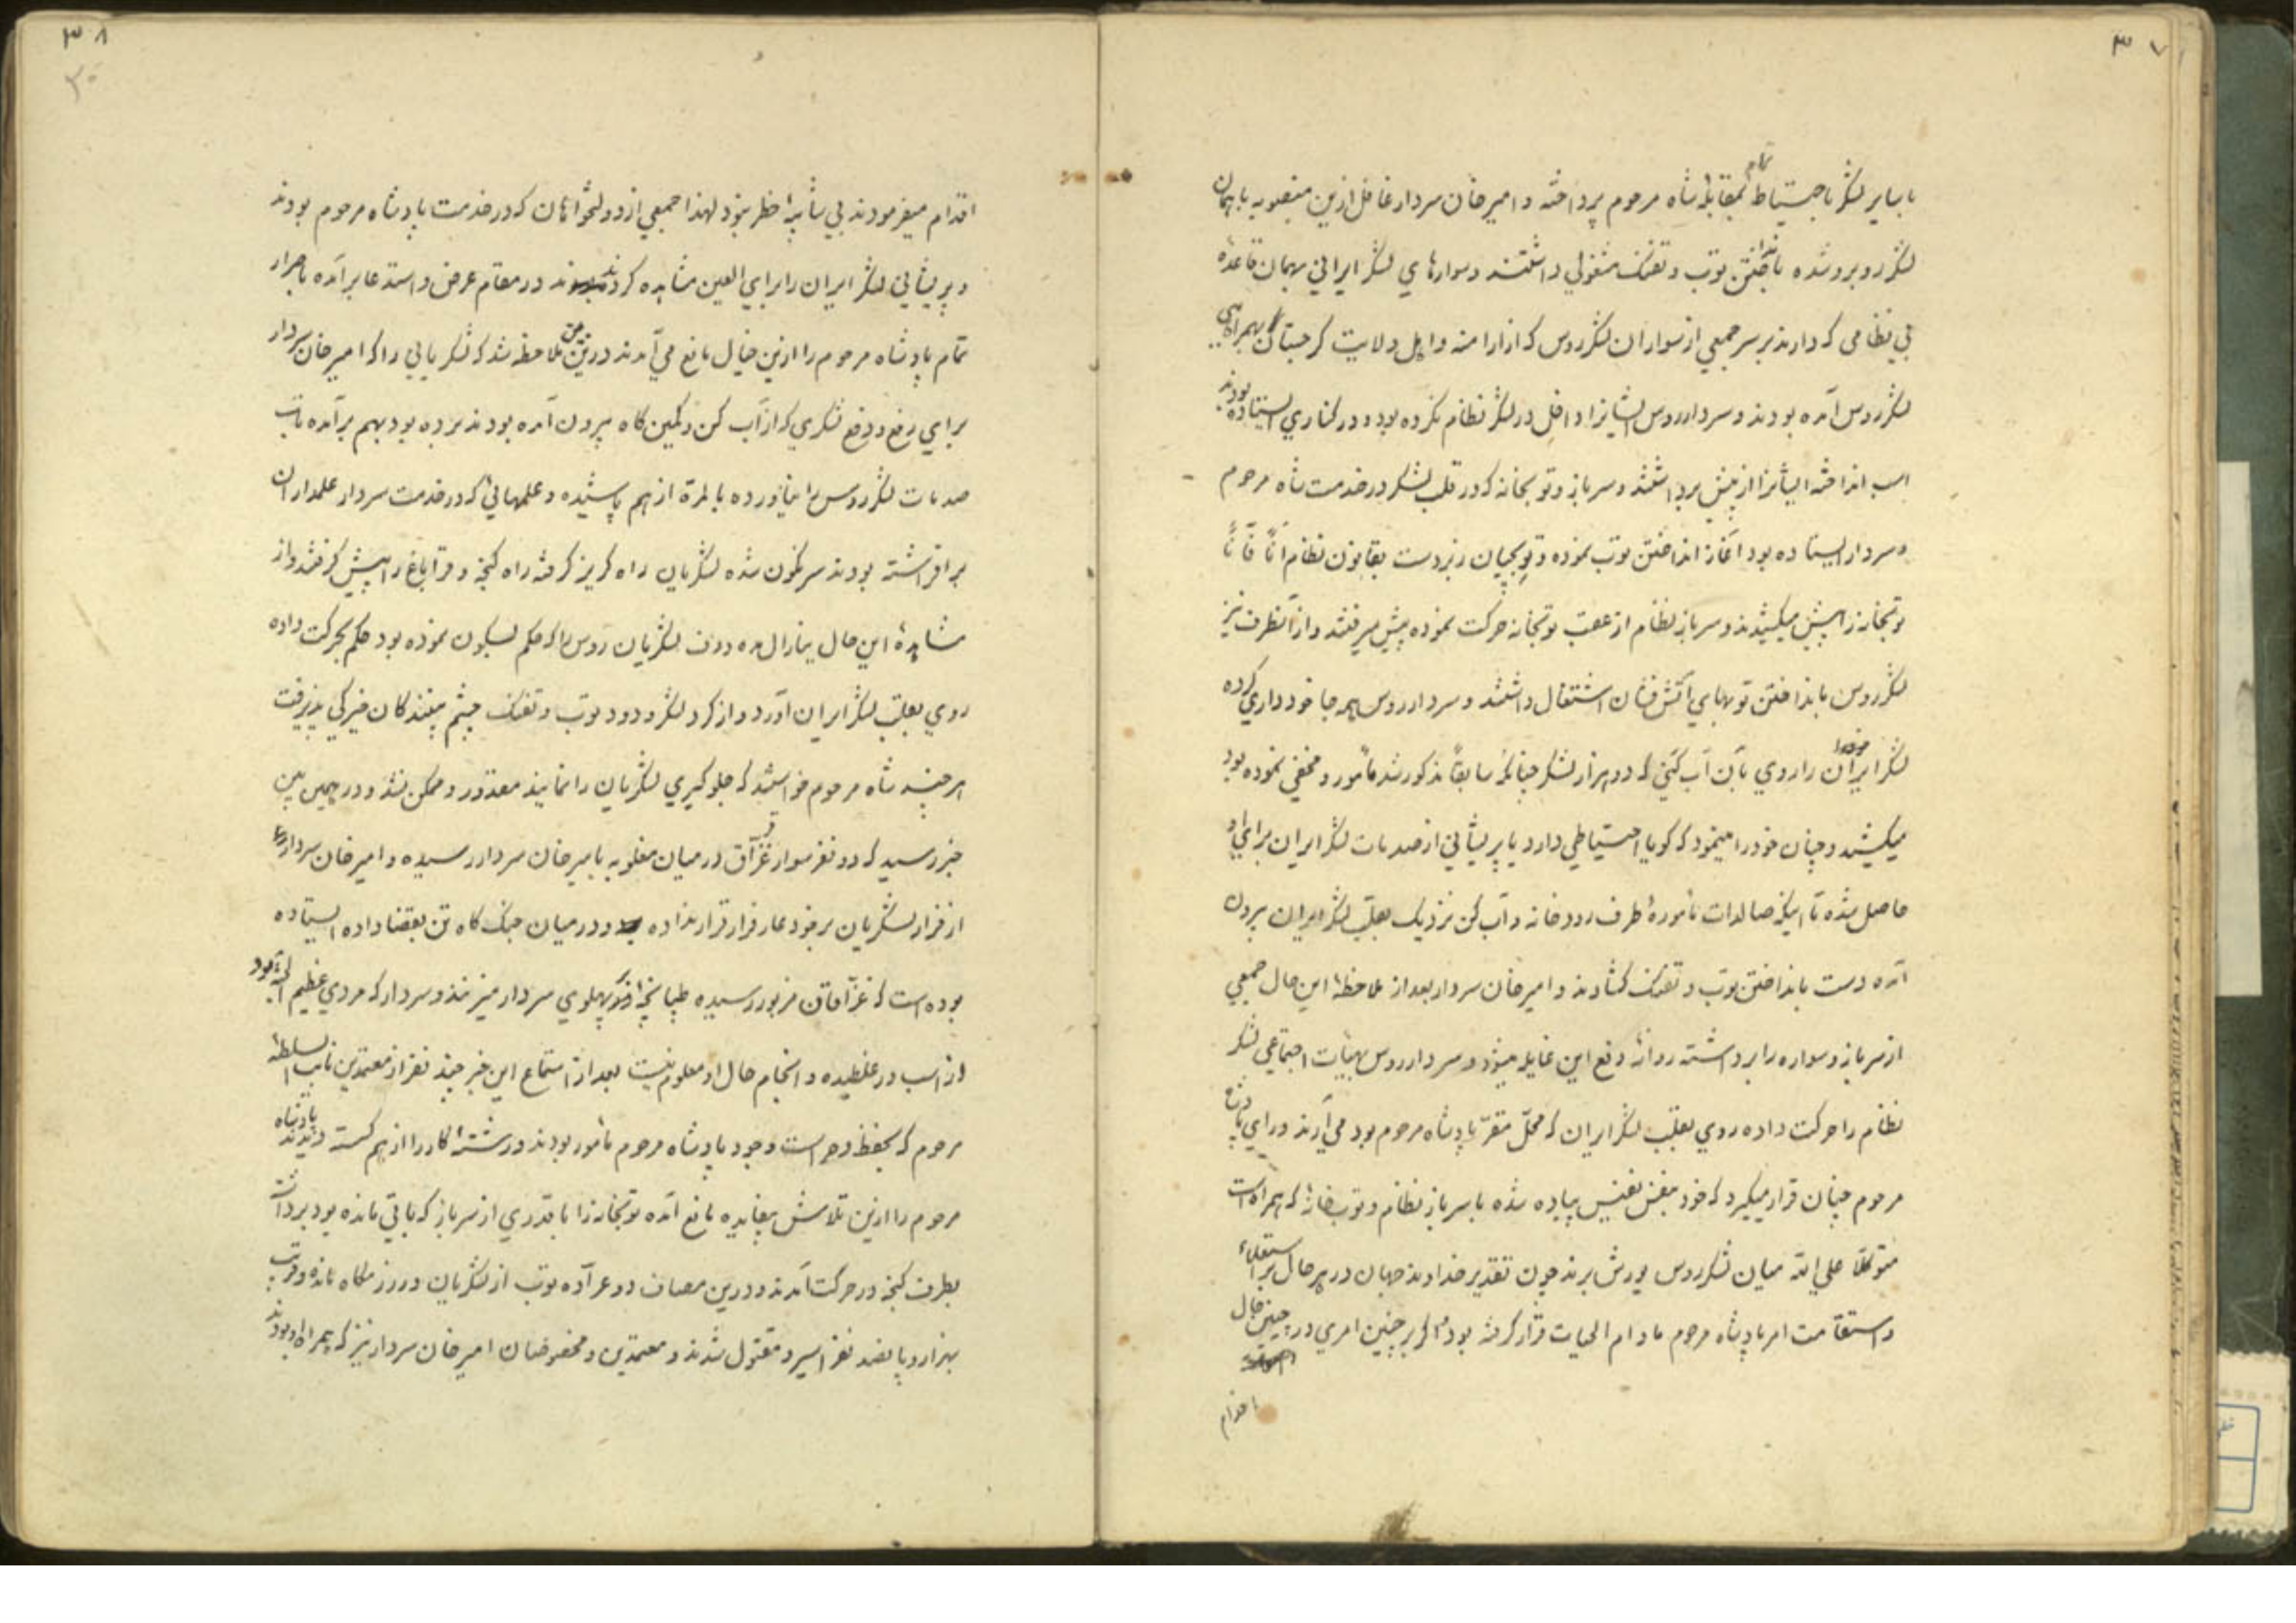 ۳۷
با سایر لشکر با احتیاط تمام بمقابلهٔ شاه مرحوم پرداخته و امیرخان سردار غافل ازین منصوبه با همان
لشکر روبرو شده بانداختن توپ و تفنک مشغولی داشتند و سوارهای لشکر ایرانی بهمان قاعدهٔ
بی نظامی که دارند بر سر جمعی از سواران لشکر روس که از ارامنه و اهل ولایت کرجستان بهمراهی
لشکر روس آمده بودند و سردار روس ایشانرا داخل در لشکر نظام نکرده بود و در کناری ایستاده بودند
اسب انداخته ایشانرا از پیش برداشتند و سرباز و توپخانه که در قلب لشکر در خدمت شاه مرحوم
و سردار ایستاده بود آغاز انداختن توپ نموده و توپچیان زبردست بقانون نظام آناً فآناً
توپخانه را پیش میکشیدند و سرباز نظام از عقب توپخانه حرکت نموده پیش میرفتند و از آنطرف نیز
لشکر روس بانداختن توپهای آتش فشان اشتغال داشتند و سردار روس همه جا خود داری کرده
لشکر ایران را روی بآن آب کنی که دو هزار لشکر چنانکه سابقاً مذکور شد مأمور و مخفی نموده بود
میکشید و چنان خود را مینمود که کویا احتیاطی دارد یا پریشانی از صدمات لشکر ایران برای او
حاصل شده تا اینکه صالدات مأمورهٔ طرف رودخانه و آب کن نزدیک بقلب لشکر ایران بیرون
آمده دست بانداختن توپ و تفنک کشادند و امیرخان سردار بعد از ملاحظهٔ این حال جمعی
از سرباز و سواره را برداشته روانهٔ دفع این غایله میشود و سردار روس بهیأت اجتماعی لشکر
نظام را حرکت داده روی بقلب لشکر ایران که محلّ مقرّ پادشاه مرحوم بود می آرند و رای پادشاه
مرحوم چنان قرار میکیرد که خود بنفس نفیس پیاده شده با سرباز نظام و توپخانهٔ که همراه است
متوکلاً علی الله میان لشکر روس یورش برند چون تقدیر خداوند جهان در هر حال بر استعلاء
و استقامت امر پادشاه مرحوم مادام الحیات قرار کرفته بود اکر بر چنین امری در چنین حال
اقدام
۳۸
۳۰
اقدام میفرمودند بی شایبهٔ خطر نبود لهذا جمعی از دولتخواهان که در خدمت پادشاه مرحوم بودند
و پریشانی لشکر ایران را برای العین مشاهده کردند در مقام عرض و استدعا برآمده باصرار
تمام پادشاه مرحوم را ازین خیال مانع می آمدند درین ضمن ملاحظه شد که لشکریانی را که امیرخان سردار
برای رفع و دفع لشکری که از آب کن و کمین کاه بیرون آمده بودند برده بود بهم برآمده تاب
صدمات لشکر روس را نیاورده بالمرة از هم پاشیده و علمهائی که در خدمت سردار علمداران
برافراشته بودند سرنکون شده لشکریان راه کریز کرفته راه کنجه و قراباغ را پیش کرفتند و از
مشاهدهٔ این حال ینارال مده دوف لشکریان روس را که حکم بسکون نموده بود حکم بحرکت داده
روی بقلب لشکر ایران آورد و از کرد لشکر و دود توپ و تفنک چشم بینندکان خیرکی پذیرفت
هر چند شاه مرحوم خواستند که جلوکیری لشکریان را نمایند مقدور و ممکن نشد و در همین بین
خبر رسید که دو نفر سوار قزّاق در میان مغلوبه بامیرخان سردار رسیده و امیرخان سردار
از فرار لشکریان بر خود عار فرار قرار نداده و در میان جنک کاه تن بقضا داده ایستاده
بوده است که قزّاقان مزبور رسیده طپانچهٔ بر پهلوی سردار میزنند و سردار که مردی عظیم الجثه بود
از اسب در غلطیده و انجام حال او معلوم نیست بعد از استماع این خبر چند نفر از معتمدین نایب السلطنهٔ
مرحوم که بحفظ و حراست وجود پادشاه مرحوم مأمور بودند و رشتهٔ کار را از هم کسسته دیدند پادشاه
مرحوم را ازین تلاش بیفایده مانع آمده توپخانه را با قدری از سرباز که باقی مانده بود برداشته
بطرف کنجه در حرکت آمدند و درین مصاف دو عرّاده توپ از لشکریان در رزمکاه مانده و قرب
هزار و پانصد نفر اسیر و مقتول شدند و معتمدین و مخصوصان امیرخان سردار نیز که همراه او بودند